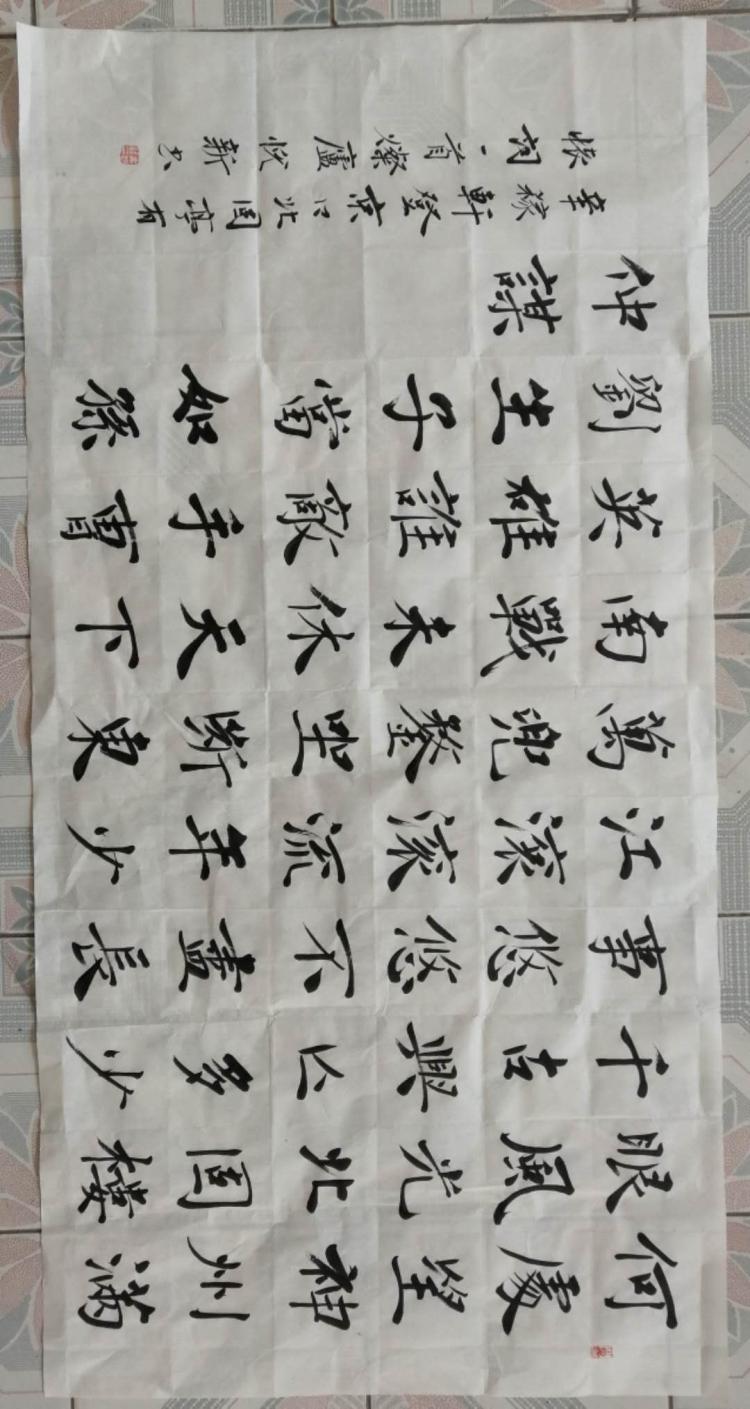 何處望神州滿
眼風光北固樓
千古興亾多少
事悠悠不盡長
江滾滾流年少
萬兜鍪坐斷東
南戰未休天下
英雄誰敵手曹
劉生子當如孫
仲謀
辛稼軒登京口北固亭有
懷詞一首燦廬悅新书